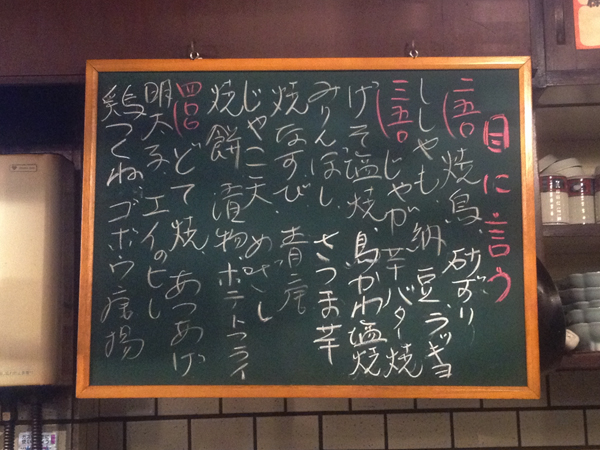 目に言う
二五〇 焼鳥、砂ずり
ししゃも、納豆、ラッキョ
三五〇 じゃが芋バター焼
げそ塩焼、鳥かわ塩焼
みりんぼし、さつま芋
焼なすび、青唐
じゃこ天、めざし
焼餅、漬物、ポテトフライ
四〇〇 どて焼、あつあげ
明太子、エイのヒレ
鶏つくねゴボウ唐揚